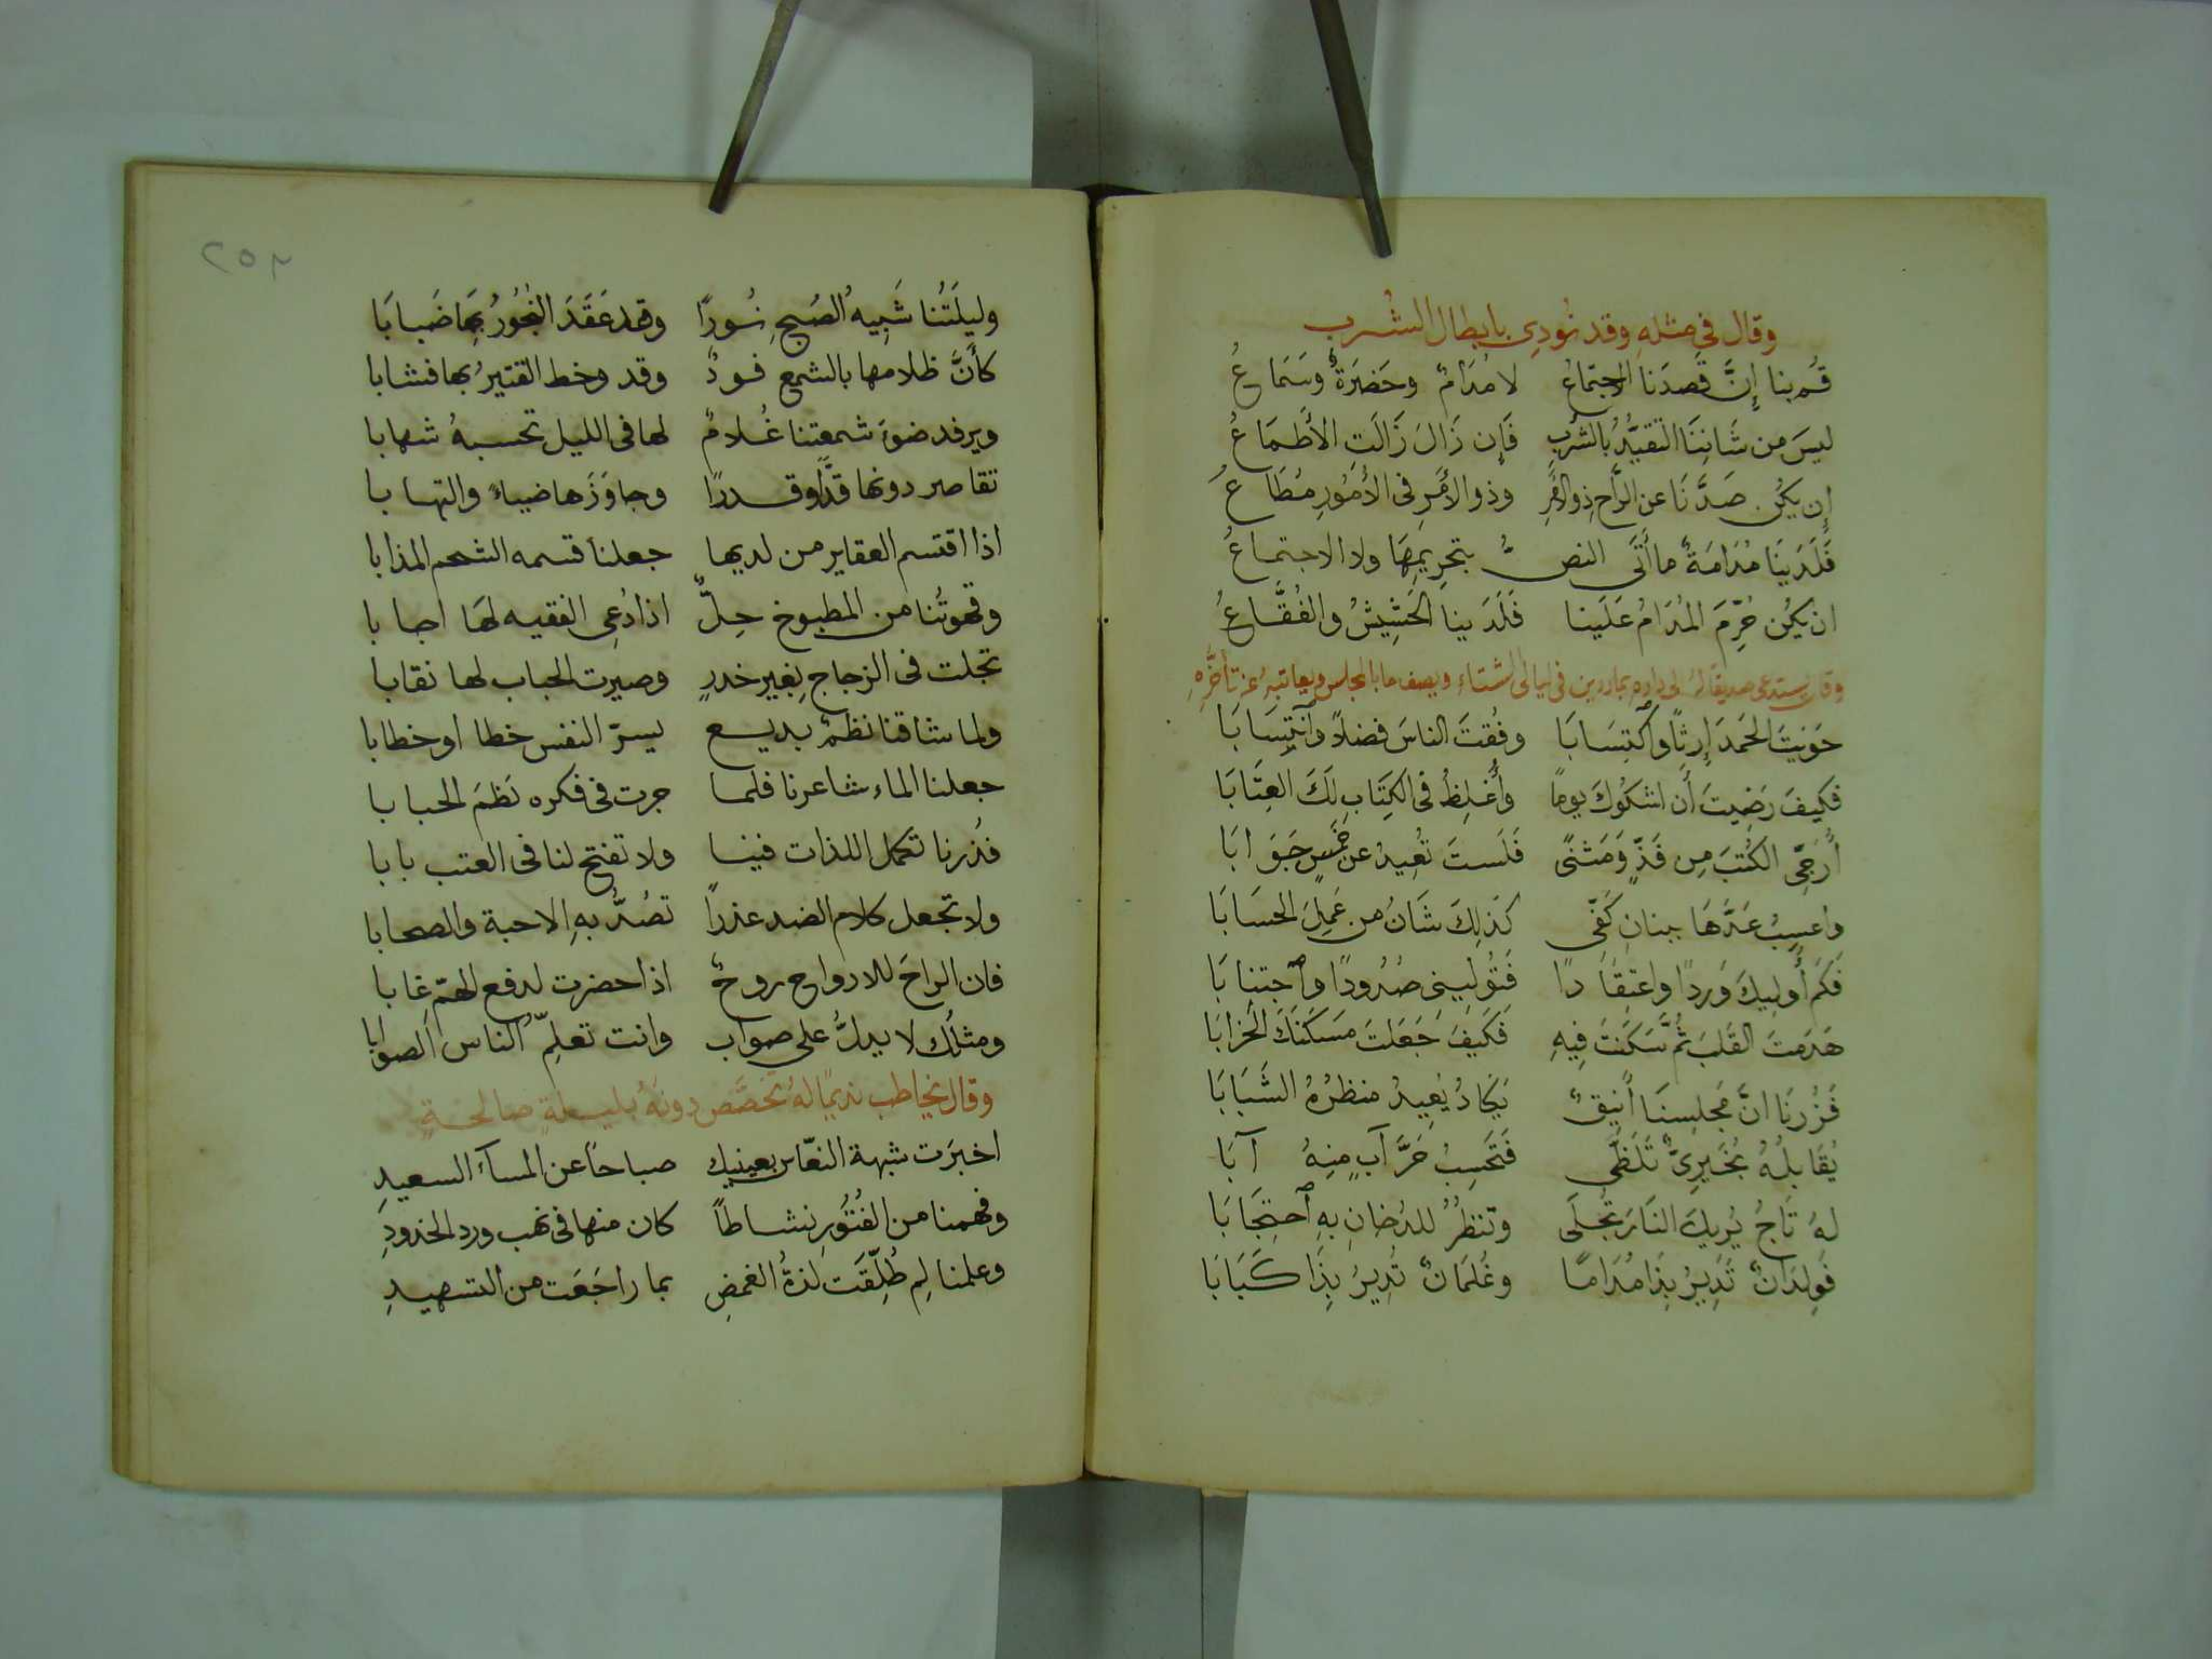 وقال في مثله وقد نودي بابطال الشرب
قُم بنا إنَّ قصدَنا الاجتماعُ لا مُدَامٌ وحَضرَةٌ وسَمَاعُ
ليسَ من شَانِنَا التقيُّدُ بالشربِ فَإن زَالَ زَالَت الأطمَاعُ
إن يكُن صَدَّنَا عن الرَّاحِ ذو الأمْرِ وذو الأمْرِ في الأمُورِ مُطَاعُ
فَلَدَينَا مُدَامَةٌ ما أتَى النصُّ بتحرِيمِهَا ولا الاجتماعُ
ان يكُن حُرِّمَ المُدَامُ عَلَينا فَلَدَينا الحَشِيشُ والفُقَّاعُ
وقال يستدعى صديقا لهُ الى داره بماردين في ليالى الشتاء ويصف ما بالمجلس ويعاتبهُ عن تأخّرهِ
حَوَيتَ الحَمدَ إرثًا وأكتِسَابَا وفُقتَ الناسَ فضلاً وأنتِسَابَا
فكيفَ رَضِيتَ أن اشكُوكَ يومًا وأُغلِظُ في الكِتَابِ لَكَ العِتَابَا
أُرَجِّى الكُتبَ مِن فَذٍّ وَمَثنًى فَلَستَ تُعِيدُ عن خَمسٍ جَوَابَا
واعسِبُ عَدَّهَا ببنانِ كَفِّى كَذلِكَ شَانُ من عَمِلَ الحسَابَا
فَكَم أُولِيكَ وردًا واعتِقَادًا فَتُولِينِى صُدُودًا وأجتنابَا
هَدَمتَ القَلبَ ثُمَّ سَكَنتَ فِيهِ فكَيفَ جَعَلتَ مَسكَنَكَ الخَرابَا
فَزُرنَا انَّ مَجلِسنَا أنِيقٌ يَكَادُ يُعِيدُ منظَرُهُ الشَبَابَا
يُقَابِلُهُ بُخَيرِىٌّ تَلَظَّى فَتَحسِبُ حَرَّ آبٍ مِنهُ آبَا
لهُ تَاجٌ يُرِيكَ النَارَ تُجلَى وتنظُرُ للدُخانِ بهِ أحتِجَابَا
فَوِلدَانٌ تُدِيرُ بِذَا مُدَامًا وغُلمَانٌ تُدِيرُ بِذَا كَبَابَا
٢٥٢
وليلَتُنا شَبِيهُ الصُبحِ نُورًا وقد عَقَدَ البُخُورُ بِهَا ضَبَابَا
كأنَّ ظلامها بالشمع فودٌ وقد وخط القتيرُ بها فشابا
ويرفد ضوءَ شمعتنا غُلامٌ لها في الليل تحسبهُ شهابا
تقاصر دونها قدًّا وقدرًا وجاوَزَها ضياءً والتهابا
اذا اقتسم العقاير من لديها جعلنا قسمه الشحم المذابا
وقهوتُنا من المطبوخ حِلٌّ اذا دُعِى الفقيه لهَا اجابا
تجلت في الزجاج بِغير خدرٍ وصيرت الحباب لها نقابا
ولما شاقنا نظمٌ بديع يسرّ النفس خطا او خطابا
جعلنا الماء شاعرنا فلما جرت في فكره نَظمَ الحبابا
فزُرنا تكمل اللذات فينا ولا تفتح لنا في العتب بابا
ولا تجعل كلام الضد عذرًا تصُدُّ بهِ الاحبة والصحابا
فان الراحَ للارواح روحٌ اذا حضرت لدفع الهمّ غابا
ومثلُك لا يدلُّ على صواب وانت تعلمّ الناس الصوابا
وقال يخاطب نديمًا لهُ تخصَّص دونَهُ بليلةٍ صالحةٍ
اخبرَت شبهة النعّاس بعينيك صباحًا عن المسآء السعيدِ
وفهمنا من الفُتُورِ نشاطًا كان منها في نهب ورد الخدودِ
وعلمنا لِم طُلِّقَت لذةُ الغمضِ بما راجَعَت من التسهيدِ